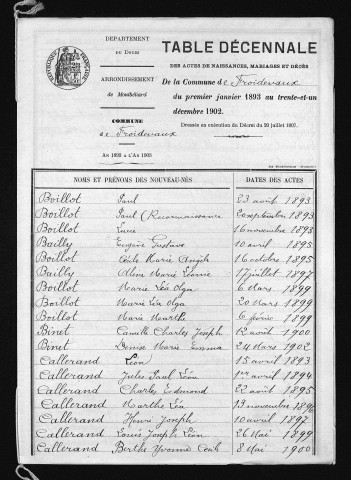 DÉPARTEMENT
DU DOUBS
ARRONDISSEMENT
de Montbéliard
COMMUNE
de Froidevaux
AN 1893 A L'AN 1903
RÉPUBLIQUE FRANÇAISE
TABLE DÉCENNALE
DES ACTES DE NAISSANCES, MARIAGES ET DÉCÈS
De la Commune de Froidevaux
du premier janvier 1893 au trente-et-un
décembre 1902.
Dressée en exécution du Décret du 20 juillet 1807.
NOMS ET PRÉNOMS DES NOUVEAU-NÉS DATES DES ACTES
Boillot Paul 23 août 1893
Boillot Paul (Reconnaissance 20 septembre 1893
Boillot Lucie 16 novembre 1893
Bailly Eugène Gustave 10 avril 1895
Boillot Cécile Marie Angèle 16 octobre 1895
Bailly Aline Marie Léonie 17 juillet 1897
Boillot Marie Léa Olga 6 mars 1899
Boillot Marie Léa Olga 20 mars 1899
Boillot Marie Marthe 6 février 1899
Binet Camille Charles Joseph 12 août 1900
Binet Denise Marie Emma 24 mars 1902
Callerand Léon 15 avril 1893
Callerand Jules Paul Léon 1er avril 1894
Callerand Charles Edmond 22 août 1895
Callerand Marthe Léa 13 novembre 1896
Callerand Henri Joseph 10 avril 1897
Callerand Louis Joseph Léon 26 Mai 1899
Callerand Berthe Yvonne 8 Mai 1900